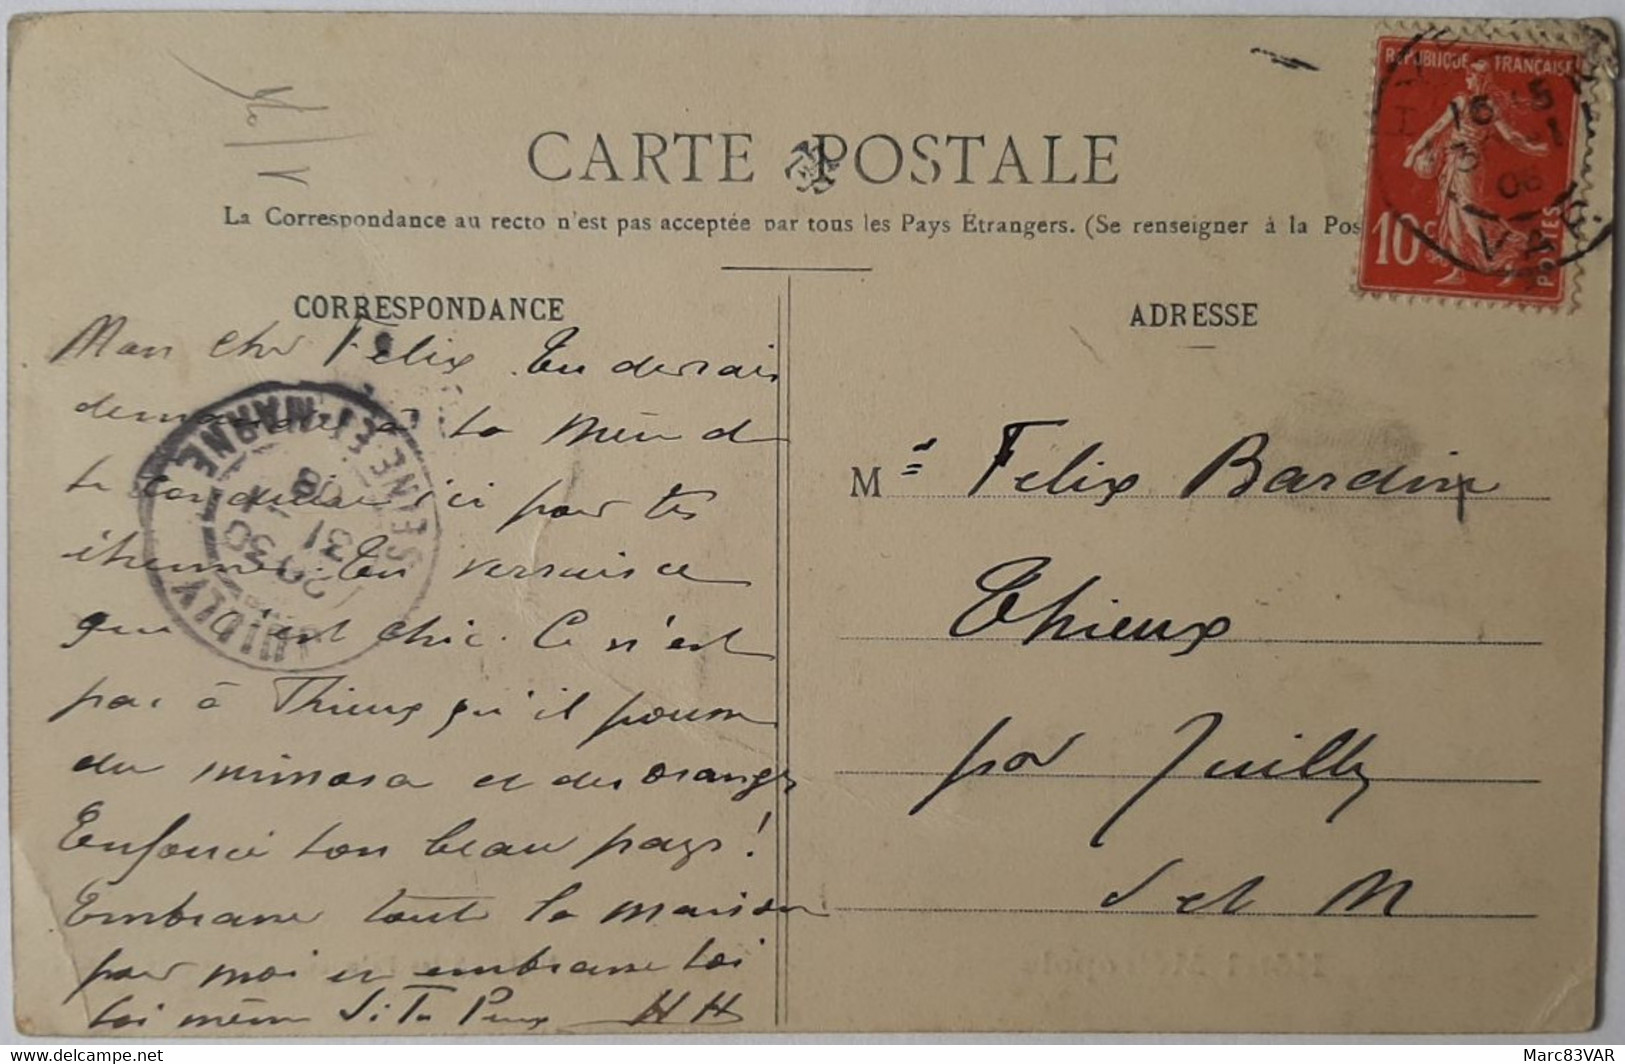 CARTE POSTALE
La Correspondance au recto n'est pas acceptée par tous les Pays Étrangers. (Se renseigner à la Pos
REPUBLIQUE FRANÇAISE
10c
POSTES
CORRESPONDANCE
Mon cher Felix Tu devrais
demander à ta mère de
te conduire ici pour tes
étrennes. Tu verrais ce
que c'est chic. Ce n'est
pas à Thieux qu'il pousse
du mimosa et des oranges
Enfoncé ton beau pays!
Embrasse toute la maison
pour moi et embrasse toi
toi même si Tu Peux HH
SEINE-ET-MARNE
20 30
31
08
JUILLY
ADRESSE
Mr Felix Bardin
Thieux
par Juilly
S et M
Marc83VAR